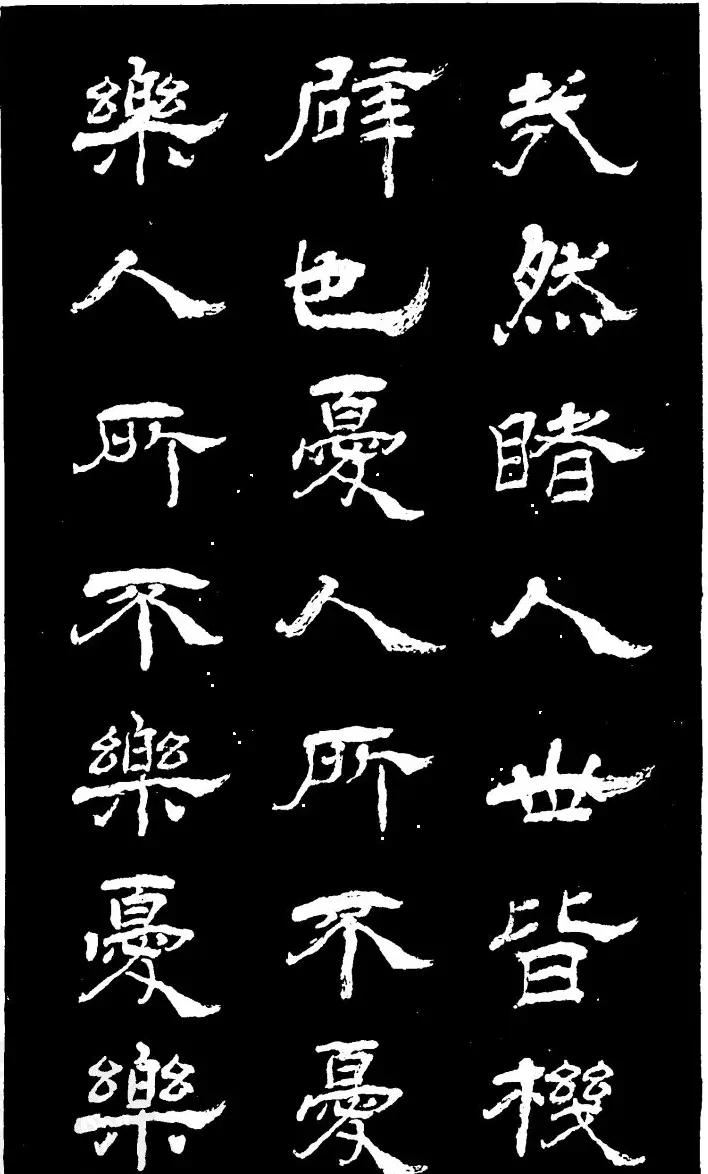 然睹人世皆機
辟也憂人所不憂
樂人所不樂憂樂